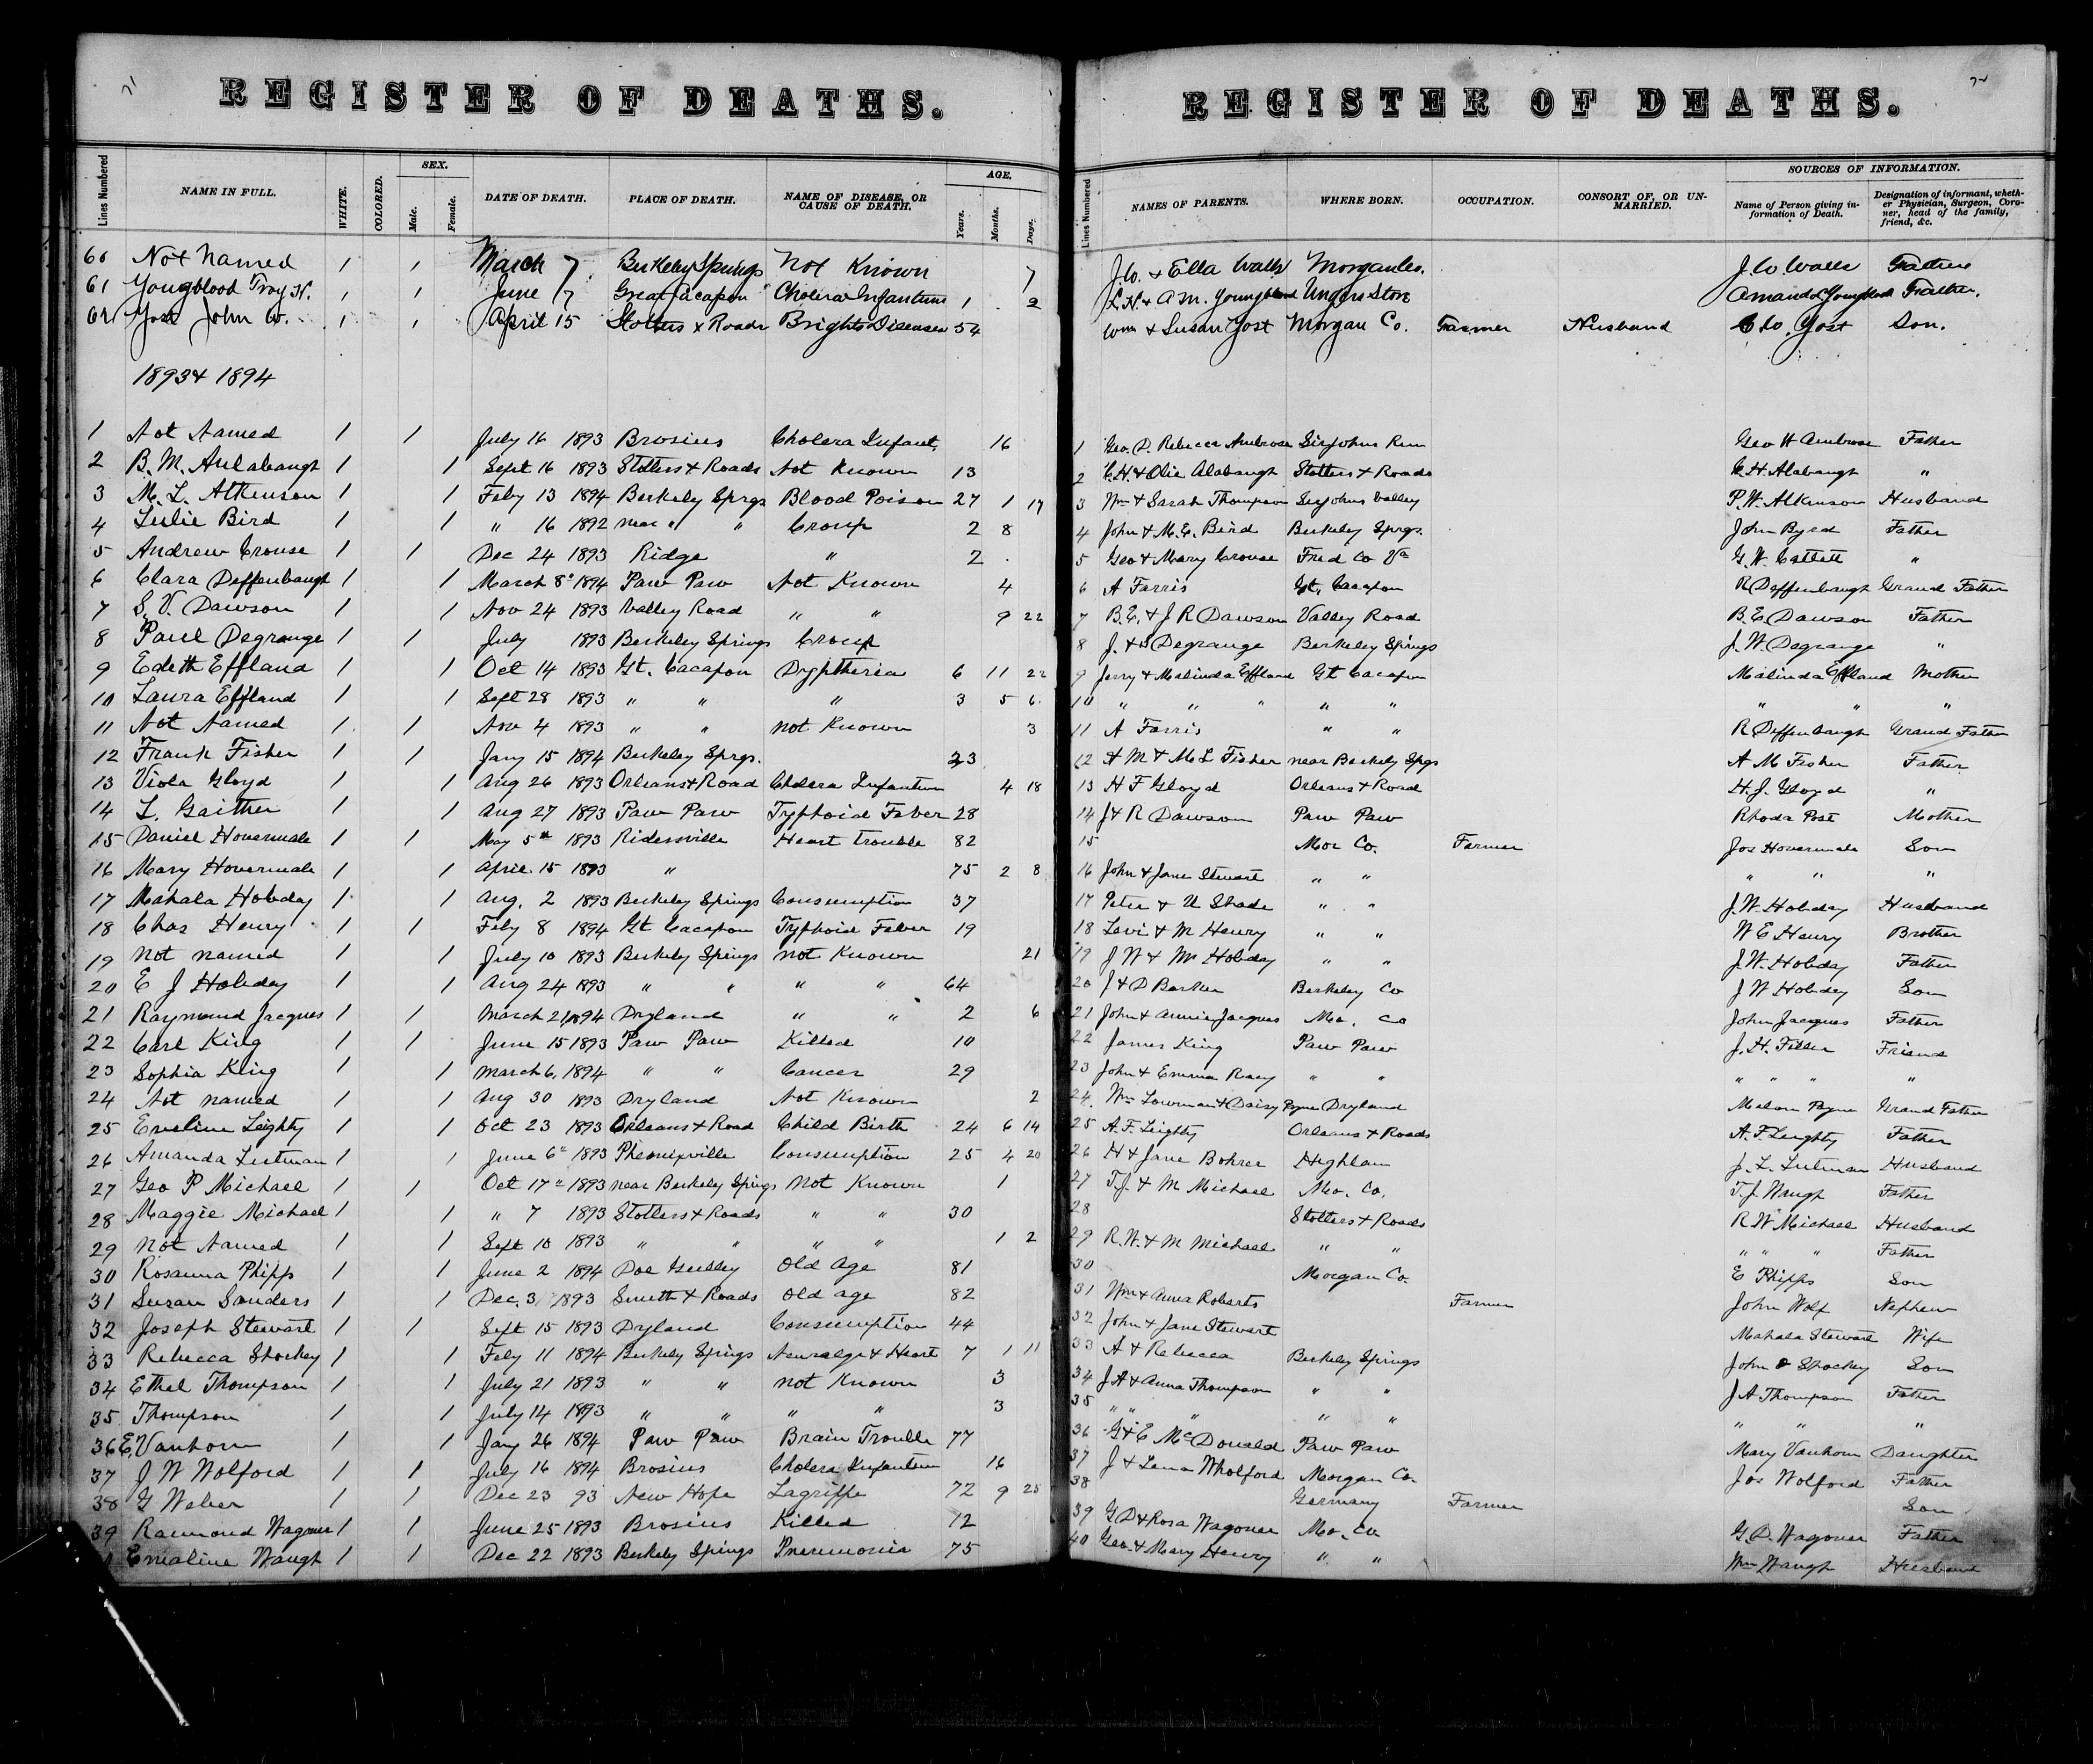 71
REGISTER OF DEATHS.
Lines Numbered | NAME IN FULL. | WHITE. | COLORED. | SEX. Male. Female. | DATE OF DEATH. | PLACE OF DEATH. | NAME OF DISEASE, OR CAUSE OF DEATH. | AGE. Years. Months. Days.
60 Not Named 1 1 March 7 Berkeley Springs Not Known 7
61 Youngblood Troy H. 1 1 June 7 Great Cacapon Cholera Infantum 1 2
62 Yost John W. 1 1 April 15 Stotlers x Roads Brights Disease 54
1893 & 1894
1 Not Named 1 1 July 16 1893 Brosius Cholera Infant. 16
2 B. M. Aulabaugh 1 1 Sept 16 1893 Stotlers + Roads Not Known 13
3 M. L. Atkinson 1 1 Feby 13 1894 Berkeley Sprgs Blood Poison 27 1 17
4 Lulie Bird 1 1 " 16 1892 near " " Croup 2 8
5 Andrew Crouse 1 1 Dec 24 1893 Ridge " 2
6 Clara Deffenbaugh 1 1 March 8" 1894 Paw Paw Not Known 4
7 S. V. Dawson 1 1 Nov 24 1893 Valley Road " " 9 22
8 Paul Degrange 1 1 July 1893 Berkeley Springs Croup
9 Edeth Effland 1 1 Oct 14 1893 Gt. Cacapon Dyptheria 6 11 22
10 Laura Effland 1 1 Sept 28 1893 " " " 3 5 6
11 Not Named 1 1 Nov 4 1893 " " not Known 3
12 Frank Fisher 1 1 Jany 15 1894 Berkeley Sprgs. 23
13 Viola Gloyd 1 1 Aug 26 1893 Orleans + Road Cholera Infantum 4 18
14 L. Gaither 1 1 Aug 27 1893 Paw Paw Typhoid Fever 28
15 Daniel Hovermale 1 1 May 5" 1893 Ridersville Heart trouble 82
16 Mary Hovermale 1 1 April 15 1893 " 75 2 8
17 Mahala Hobday 1 1 Aug. 2 1893 Berkeley Springs Consumption 37
18 Chas Henry 1 1 Feby 8 1894 Gt Cacapon Typhoid Fever 19
19 not named 1 1 July 10 1893 Berkeley Springs not Known 21
20 E J Hobday 1 1 Aug 24 1893 " " " " 64
21 Raymond Jacques 1 1 March 21, 1894 Dryland " " 2 6
22 Carl King 1 1 June 15 1893 Paw Paw Killed 10
23 Sophia King 1 1 March 6, 1894 " " Cancer 29
24 Not named 1 1 Aug 30 1893 Dryland Not Known 2
25 Emeline Leighty 1 1 Oct 23 1893 Orleans + Road Child Birth 24 6 14
26 Amanda Lutman 1 1 June 6" 1893 Pheonixville Consumption 25 4 20
27 Geo P Michael 1 1 Oct 17" 1893 near Berkeley Springs Not Known 1
28 Maggie Michael 1 1 " 7 1893 Stotlers + Roads " " 30
29 Not Named 1 1 Sept 10 1893 " " " " 1 2
30 Rosanna Phipps 1 1 June 2 1894 Doe Gulley Old Age 81
31 Susan Sanders 1 1 Dec. 3 1893 Smith + Roads Old age 82
32 Joseph Stewart 1 1 Sept 15 1893 Dryland Consumption 44
33 Rebecca Shockey 1 1 Feby 11 1894 Berkeley Springs Neuralgi + Heart 7 1 11
34 Ethel Thompson 1 1 July 21 1893 " " not Known 3
35 Thompson 1 1 July 14 1893 " " " " 3
36 E. Vanhorn 1 1 Jany 26 1894 Paw Paw Brain Trouble 77
37 J W Wolford 1 1 July 16 1894 Brosius Cholera Infantum 16
38 G Weber 1 1 Dec 23 93 New Hope Lagrippe 72 9 25
39 Raumond Wagoner 1 1 June 25 1893 Brosius Killed 12
Emaline Waugh 1 1 Dec 22 1893 Berkeley Springs Pneumonia 75
72
REGISTER OF DEATHS.
Lines Numbered | NAMES OF PARENTS. | WHERE BORN. | OCCUPATION. | CONSORT OF, OR UNMARRIED. | SOURCES OF INFORMATION. Name of Person giving information of Death. | Designation of informant, whether Physician, Surgeon, Coroner, head of the family, friend, &c.
J. W. + Ella Walls Morgan Co. J W Walls Father
L. H. + A M. Youngblood Ungers Store Amanda Youngblood Father.
Wm + Susan Yost Morgan Co. Farmer Husband Yost Son.
1 Geo. D. Rebecca Ambrose Sir Johns Run Geo W Ambrose Father
2 C. H. + Olie Alabaugh Stotlers + Roads C. H. Alabaugh "
3 Wm + Sarah Thompson Sirjohns Valley P. W. Atkinson Husband
4 John + M. E. Bird Berkeley Sprgs. John Byrd Father
5 Geo + Mary Crouse Fred Co Va G. W. Catlett "
6 A Farris Gt. Cacapon R Deffenbaugh Grand Father
7 B. E. + J R Dawson Valley Road B. E. Dawson Father
8 J. + S Degrange Berkeley Springs J. W. Degrange "
9 Jerry + Malinda Effland Gt Cacapon Malinda Effland Mother
10 " " " " " " " "
11 A Farris " " R Deffenbaugh Grand Father
12 A M + M L Fisher near Berkely Spgs A M Fisher Father
13 H F Gloyd Orleans + Road H. J. Gloyd "
14 J + R Dawson Paw Paw Rhoda Post Mother
15 Mor Co. Farmer Jos Hovermale Son
16 John + Jane Stewart " " " " "
17 Peter + U Shade " " J. W. Hobday Husband
18 Levi + M Henry " " W E Henry Brother
19 J W + M Hobday " " J. W. Hobday Father
20 J + D Barker Berkeley Co J W Hobday Son
21 John + Annie Jacques Mo. Co John Jacques Father
22 James King Paw Paw J. H. Filler Friend
23 John + Emma Racy " " " " " "
24. Wm Lowman + Daisy Payne Dryland Payne Grand Father
25 A. F. Leighty Orleans + Roads A. F. Leighty Father
26 H + Jane Bohrer Highland J. L. Lutman Husband
27 T. J. + M Michael Mo. Co. T. J. Waugh Father
28 Stotlers + Roads R W Michael Husband
29 R. W. + M Michael " " " " " Father
30 Morgan Co. E Phipps Son
31 Wm + Anna Roberts Farmer John Wolf Nephew
32 John + Jane Stewart Mahala Stewart Wife
33 A + Rebecca Berkeley Springs John Shockey Son
34 J A + Anna Thompson " " J A Thompson Father
35 " " " " " " " "
36 G + E McDonald Paw Paw Mary Vanhorn Daughter
37 J + Lena Wholford Morgan Co. Jos Wolford Father
38 Germany Farmer Son
39 G D + Rosa Wagoner Mo. Co G. D. Wagoner Father
40 Geo. + Mary Henry " " Wm Waugh Husband